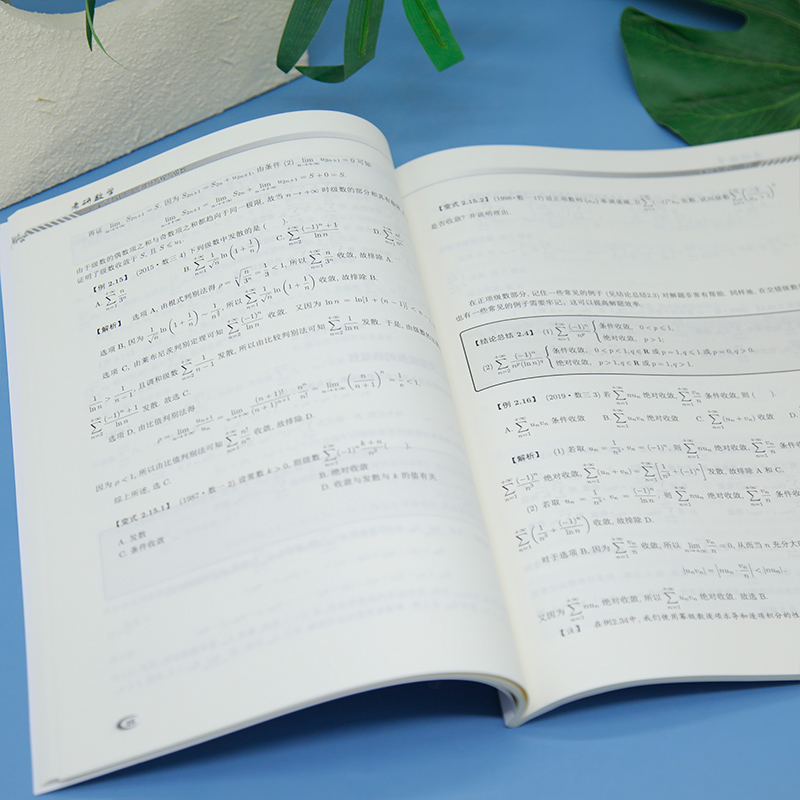 考研数学
再证 $\lim_{n\to+\infty} S_{2n+1}=S$. 因为 $S_{2n+1}=S_{2n}+u_{2n+1}$, 由条件 (2) $\lim_{n\to+\infty} u_{2n+1}=0$ 可知
$\lim_{n\to+\infty} S_{2n+1}=\lim_{n\to+\infty} S_{2n}+\lim_{n\to+\infty} u_{2n+1}=S+0=S.$
由于级数的偶数项之和与奇数项之和都趋向于同一极限, 故当 $n\to+\infty$ 时级数的部分和具有极限
证明了级数收敛于 $S$, 且 $S\leqslant u_1$.
【例 2.15】 (2015·数三 4) 下列级数中发散的是 ( ).
A. $\sum_{n=1}^{+\infty}\frac{n}{3^n}$ B. $\sum_{n=1}^{+\infty}\frac{1}{\sqrt{n}}\ln\left(1+\frac{1}{n}\right)$ C. $\sum_{n=2}^{+\infty}\frac{(-1)^n+1}{\ln n}$ D. $\sum_{n=1}^{+\infty}\frac{n!}{n^n}$
【解析】 选项 A, 由根式判别法得 $\rho=\sqrt[n]{\frac{n}{3^n}}=\frac{1}{3}<1$, 所以 $\sum_{n=1}^{+\infty}\frac{n}{3^n}$ 收敛, 故排除 A.
选项 B, 因为 $\frac{1}{\sqrt{n}}\ln\left(1+\frac{1}{n}\right)\sim\frac{1}{n^{\frac{3}{2}}}$, 所以 $\sum_{n=1}^{+\infty}\frac{1}{\sqrt{n}}\ln\left(1+\frac{1}{n}\right)$ 收敛, 故排除 B.
选项 C, 由莱布尼茨判别定理可知 $\sum_{n=2}^{+\infty}\frac{(-1)^n}{\ln n}$ 收敛. 又因为 $\ln n=\ln[1+(n-1)]<n-1$
$\frac{1}{\ln n}>\frac{1}{n-1}$, 且调和级数 $\sum_{n=2}^{+\infty}\frac{1}{n-1}$ 发散, 所以由比较判别法可知 $\sum_{n=2}^{+\infty}\frac{1}{\ln n}$ 发散. 于是, 由级数的
$\sum_{n=2}^{+\infty}\frac{(-1)^n+1}{\ln n}$ 发散. 故选 C.
选项 D, 由比值判别法得
$\rho=\lim_{n\to+\infty}\frac{u_{n+1}}{u_n}=\lim_{n\to+\infty}\frac{(n+1)!}{(n+1)^{n+1}}\cdot\frac{n^n}{n!}=\lim_{n\to+\infty}\left(\frac{n}{n+1}\right)^n=\frac{1}{e}<1,$
因为 $\rho<1$, 所以由比值判别法可知 $\sum_{n=1}^{+\infty}\frac{n!}{n^n}$ 收敛, 故排除 D.
综上所述, 选 C.
【变式 2.15.1】 (1987·数一 2) 设常数 $k>0$, 则级数 $\sum_{n=1}^{+\infty}(-1)^n\frac{k+n}{n^2}$ ( ).
A. 发散 B. 绝对收敛
C. 条件收敛 D. 收敛与发散与 $k$ 的值有关
【变式 2.15.2】 (1998·数一 17) 设正项数列 $\{a_n\}$ 单调减少, 且 $\sum_{n=1}^{+\infty}(-1)^n a_n$ 发散, 试问级数
是否收敛? 并说明理由.
在正项级数部分, 记住一些常见的例子 (见结论总结2.3) 对解题非常有帮助. 同样地, 在交错级数
也有一些常见的例子需要牢记, 这可以提高解题效率.
【结论总结 2.4】 (1) $\sum_{n=1}^{+\infty}\frac{(-1)^n}{n^p}$ { 条件收敛, $0<p\leqslant1$, 绝对收敛, $p>1$.
(2) $\sum_{n=2}^{+\infty}\frac{(-1)^n}{n^p(\ln n)^q}$ { 条件收敛, $0<p<1, q\in\mathbf{R}$ 或 $p=1, q\leqslant1$ 或 $p=0, q>0$, 绝对收敛, $p>1, q\in\mathbf{R}$ 或 $p=1, q>1$.
【例 2.16】 (2019·数三 3) 若 $\sum_{n=1}^{+\infty}nu_n$ 绝对收敛, $\sum_{n=1}^{+\infty}\frac{v_n}{n}$ 条件收敛, 则 ( ).
A. $\sum_{n=1}^{+\infty}u_nv_n$ 条件收敛 B. $\sum_{n=1}^{+\infty}u_nv_n$ 绝对收敛 C. $\sum_{n=1}^{+\infty}(u_n+v_n)$ 收敛 D.
【解析】 (1) 若取 $u_n=\frac{1}{n^3}, v_n=(-1)^n$, 则 $\sum_{n=1}^{+\infty}nu_n$ 绝对收敛, $\sum_{n=1}^{+\infty}\frac{v_n}{n}$ 条件收
$\sum_{n=1}^{+\infty}\frac{(-1)^n}{n^3}$ 绝对收敛, $\sum_{n=1}^{+\infty}(u_n+v_n)=\sum_{n=1}^{+\infty}\left[\frac{1}{n^3}+(-1)^n\right]$ 发散, 故排除 A 和 C.
(2) 若取 $u_n=\frac{1}{n^3}, v_n=\frac{(-1)^n}{\ln n}$, 则 $\sum_{n=1}^{+\infty}nu_n$ 绝对收敛, $\sum_{n=1}^{+\infty}\frac{v_n}{n}$ 条件
$\sum_{n=1}^{+\infty}\left(\frac{1}{n^3}+\frac{(-1)^n}{\ln n}\right)$ 收敛, 故排除 D.
对于选项 B, 因为 $\sum_{n=1}^{+\infty}\frac{v_n}{n}$ 收敛, 所以 $\lim_{n\to+\infty}\frac{v_n}{n}=0$, 从而当 $n$ 充分大
$|u_nv_n|=\left|nu_n\cdot\frac{v_n}{n}\right|<|nu_n|.$
又因为 $\sum_{n=1}^{+\infty}nu_n$ 绝对收敛, 所以 $\sum_{n=1}^{+\infty}u_nv_n$ 绝对收敛. 故选 B.
【注】 在例2.34中, 我们使用幂级数逐项求导和逐项积分的性